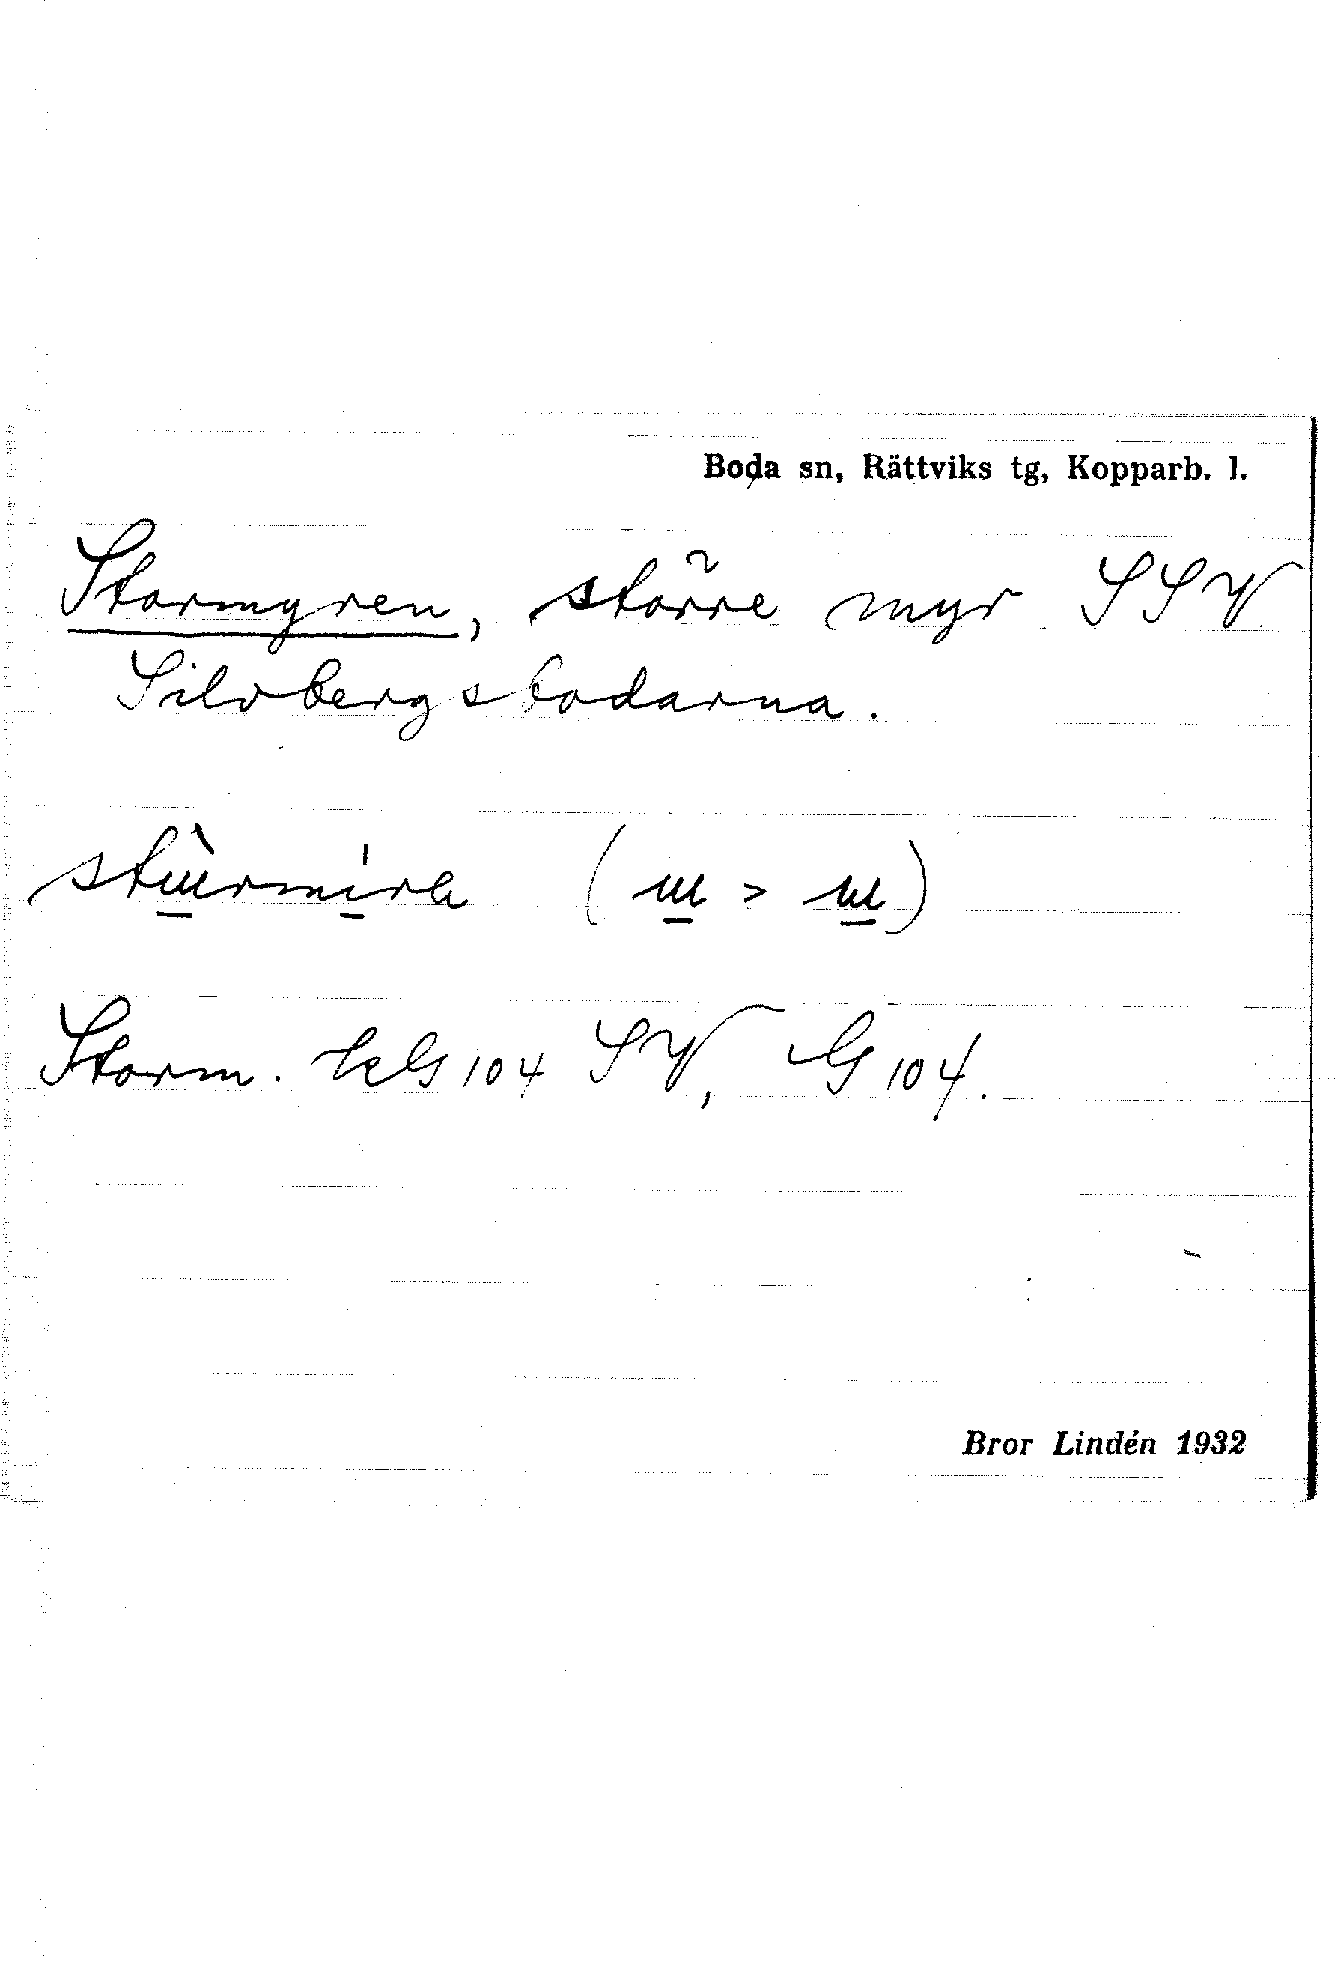 Boda sn, Rättviks tg, Kopparb. l.
Stormyren, större myr SSV
Silvbergsbodarna.
Storm. 104 SV, G 104.
Bror Lindén 1932